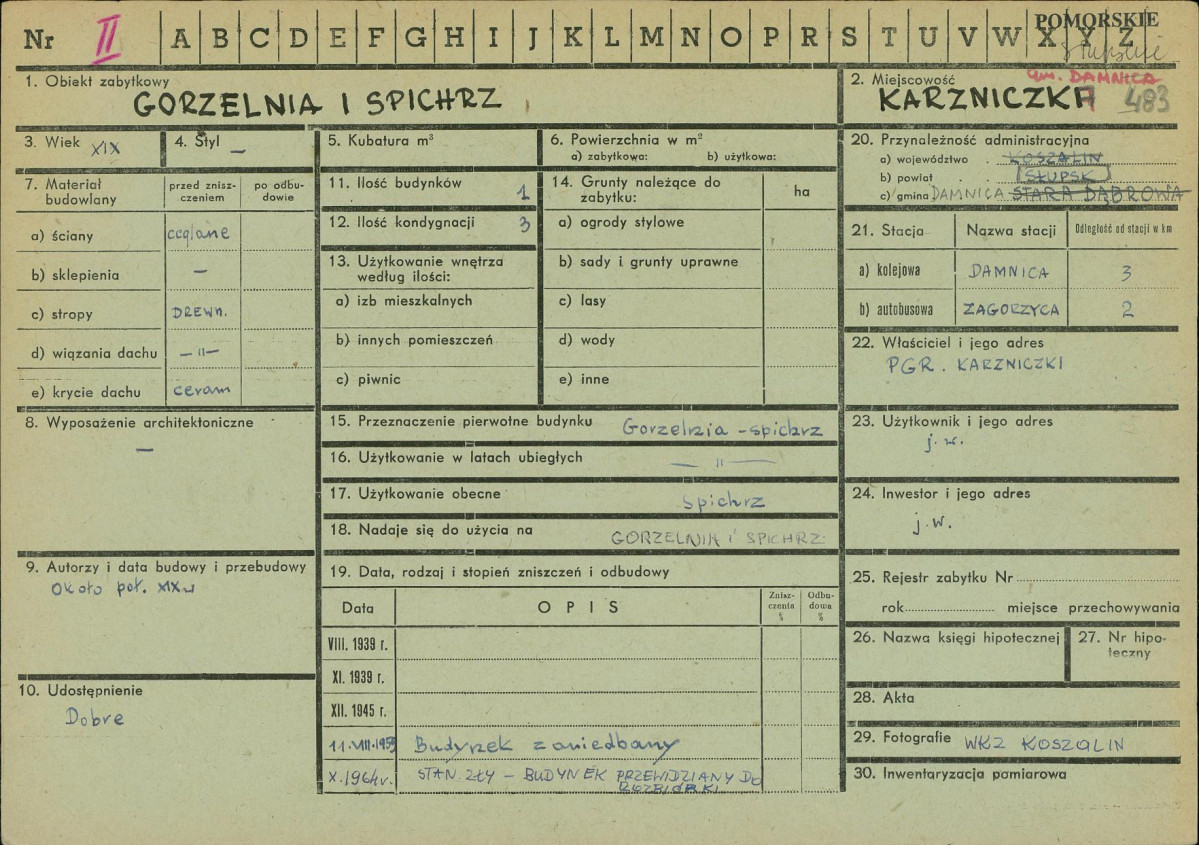 Nr II A B C D E F G H I J K L M N O P R S T U V W X Y Z
POMORSKIE
1. Obiekt zabytkowy
GORZELNIA I SPICHRZ
2. Miejscowość
gm. DAMNICA
KARZNICZKA 483
3. Wiek XIX
4. Styl —
5. Kubatura m³
6. Powierzchnia w m²
a) zabytkowa: b) użytkowa:
7. Materiał budowlany
przed zniszczeniem
po odbudowie
a) ściany ceglane
b) sklepienia —
c) stropy DREWN.
d) wiązania dachu —"—
e) krycie dachu ceram
8. Wyposażenie architektoniczne
—
9. Autorzy i data budowy i przebudowy
Około poł. XIX w
10. Udostępnienie
Dobre
11. Ilość budynków 1
12. Ilość kondygnacji 3
13. Użytkowanie wnętrza
według ilości:
a) izb mieszkalnych
b) innych pomieszczeń
c) piwnic
14. Grunty należące do
zabytku:
ha
a) ogrody stylowe
b) sady i grunty uprawne
c) lasy
d) wody
e) inne
15. Przeznaczenie pierwotne budynku Gorzelnia - spichrz
16. Użytkowanie w latach ubiegłych — " —
17. Użytkowanie obecne spichrz
18. Nadaje się do użycia na GORZELNIA I SPICHRZ
19. Data, rodzaj i stopień zniszczeń i odbudowy
Data
OPIS
Zniszczenia %
Odbudowa %
VIII. 1939 r.
XI. 1939 r.
XII. 1945 r.
11.VIII.1959 Budynek zaniedbany
X.1964r. STAN ZŁY – BUDYNEK PRZEWIDZIANY DO
ROZBIÓRKI
20. Przynależność administracyjna
a) województwo KOSZALIN
b) powiat SŁUPSK
c) gmina DAMNICA STARA DĄBROWA
21. Stacja
Nazwa stacji
Odległość od stacji w km
a) kolejowa DAMNICA 3
b) autobusowa ZAGORZYCA 2
22. Właściciel i jego adres
PGR. KARZNICZKI
23. Użytkownik i jego adres
j. w.
24. Inwestor i jego adres
j. w.
25. Rejestr zabytku Nr
rok miejsce przechowywania
26. Nazwa księgi hipotecznej
27. Nr hipo-
teczny
28. Akta
29. Fotografie WKZ KOSZALIN
30. Inwentaryzacja pomiarowa